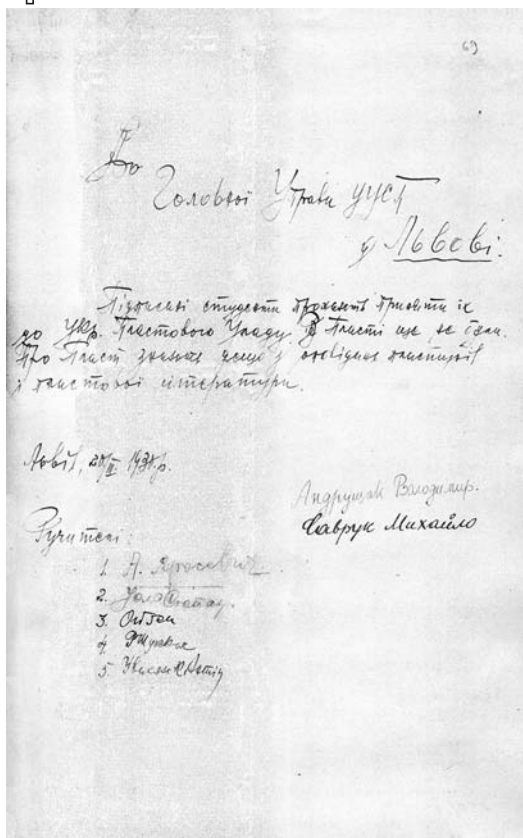 69
До
Головної Управи УУСП
у Львові.
Підписані студенти прохають приняти їх
до Укр. Пластового Уладу. В Пласті ще не були.
Про Пласт знають дещо з оповідань пластунів
і пластової літератури.
Львів,
Андрущак Володимир.
Саврук Михайло
Ручителі:
1. А. Яросевич
2.
3.
4.
5.